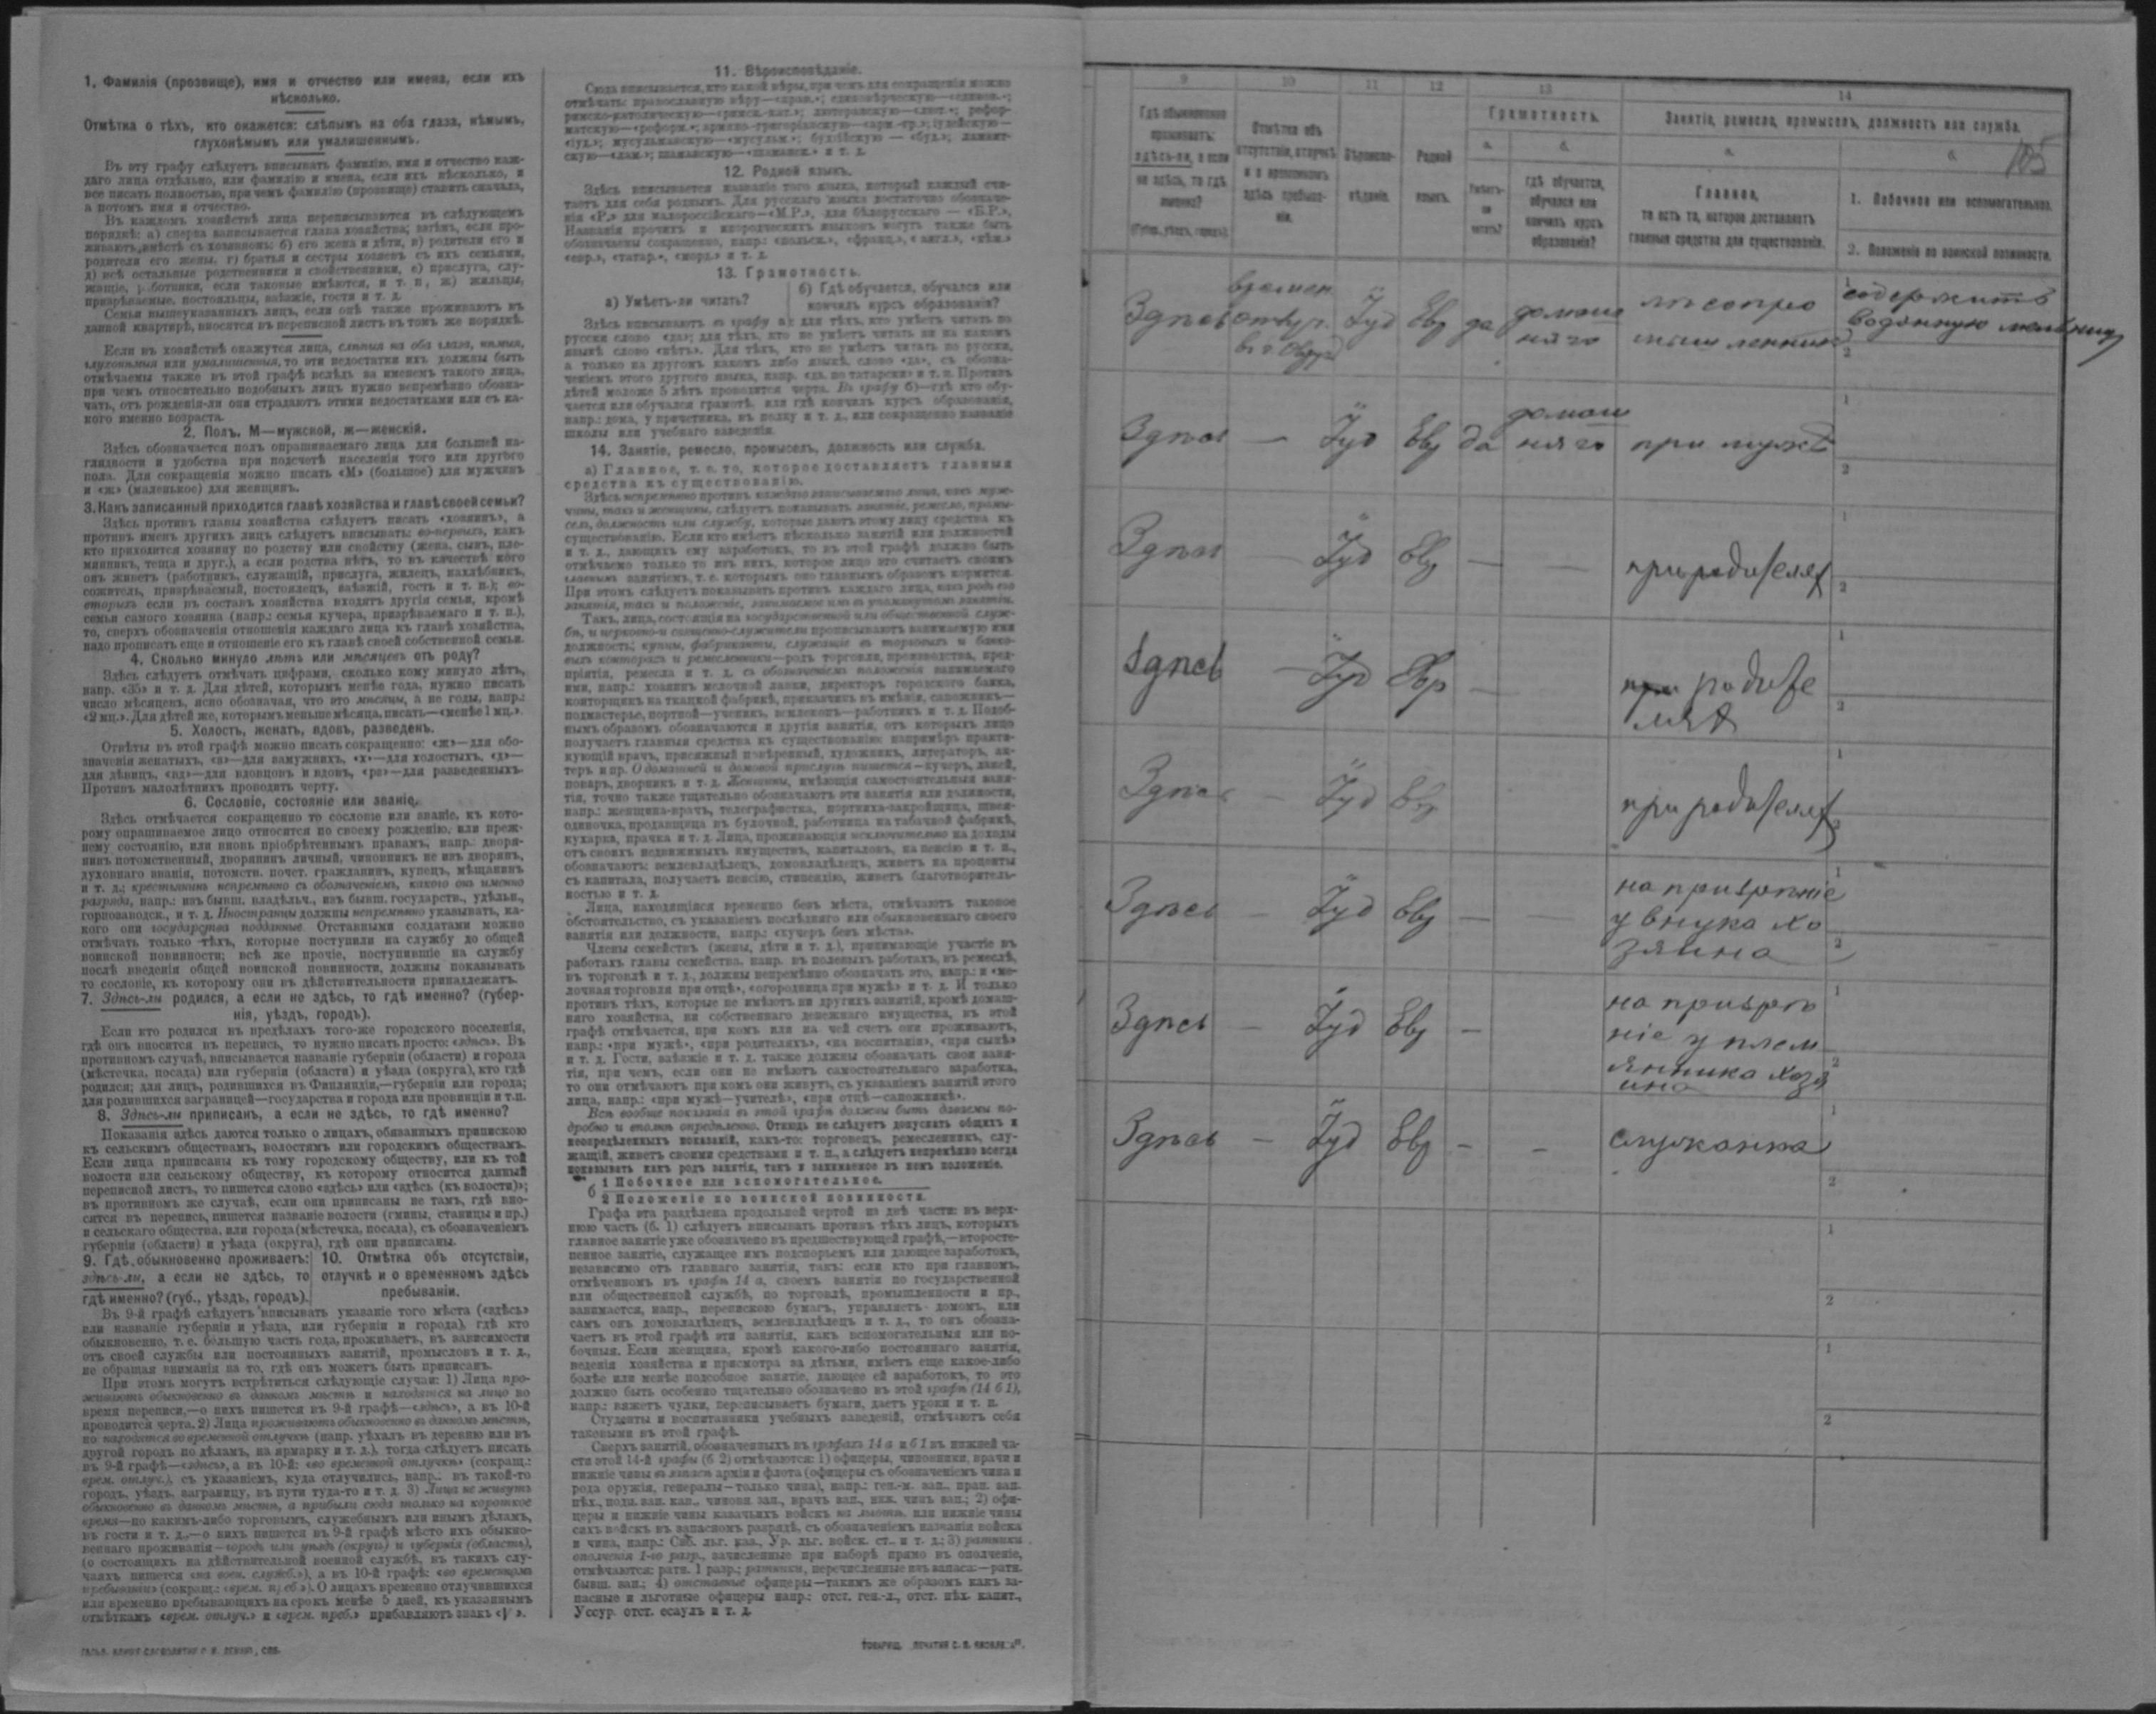 1. Фамилія (прозвище), имя и отчество или имена, если ихъ
нѣсколько.
Отмѣтка о тѣхъ, кто окажется: слѣпымъ на оба глаза, нѣмымъ,
глухонѣмымъ или умалишеннымъ.
Въ эту графу слѣдуетъ вписывать фамилію, имя и отчество каж-
даго лица отдѣльно, или фамилію и имена, если ихъ нѣсколько, и
все писать полностью, при чемъ фамилію (прозвище) ставить сначала,
а потомъ имя и отчество.
Въ каждомъ хозяйствѣ лица переписываются въ слѣдующемъ
порядкѣ: а) сперва записывается глава хозяйства; затѣмъ, если про-
живаютъ вмѣстѣ съ хозяиномъ: б) его жена и дѣти, в) родители его и
родители его жены, г) братья и сестры хозяевъ съ ихъ семьями,
д) всѣ остальные родственники и свойственники, е) прислуга, слу-
жащіе, работники, если таковые имѣются, и т. п., ж) жильцы,
призрѣваемые, постояльцы, заѣзжіе, гости и т. д.
Семьи вышеуказанныхъ лицъ, если онѣ также проживаютъ въ
данной квартирѣ, вносятся въ переписной листъ въ томъ же порядкѣ.
Если въ хозяйствѣ окажутся лица, слѣпыя на оба глаза, нѣмыя,
глухонѣмыя или умалишенныя, то эти недостатки ихъ должны быть
отмѣчаемы также въ этой графѣ вслѣдъ за именемъ такого лица,
при чемъ относительно подобныхъ лицъ нужно непремѣнно обозна-
чать, отъ рожденія-ли они страдаютъ этими недостатками или съ ка-
кого именно возраста.
2. Полъ. М—мужской, ж—женскій.
Здѣсь обозначается полъ опрашиваемаго лица для большей на-
глядности и удобства при подсчетѣ населенія того или другого
пола. Для сокращенія можно писать «М» (большое) для мужчинъ
и «ж» (маленькое) для женщинъ.
3. Какъ записанный приходится главѣ хозяйства и главѣ своей семьи?
Здѣсь противъ главы хозяйства слѣдуетъ писать «хозяинъ», а
противъ именъ другихъ лицъ слѣдуетъ вписывать: во-первыхъ, какъ
кто приходится хозяину по родству или свойству (жена, сынъ, пле-
мянникъ, теща и друг.), а если родства нѣтъ, то въ качествѣ кого
онъ живетъ (работникъ, служащій, прислуга, жилецъ, нахлѣбникъ,
сожитель, призрѣваемый, постоялецъ, заѣзжій, гость и т. п.); во-
вторыхъ если въ составъ хозяйства входятъ другія семьи, кромѣ
семьи самого хозяина (напр.: семья кучера, призрѣваемаго и т. п.),
то, сверхъ обозначенія отношенія каждаго лица къ главѣ хозяйства,
надо прописать еще и отношеніе его къ главѣ своей собственной семьи.
4. Сколько минуло лѣтъ или мѣсяцевъ отъ роду?
Здѣсь слѣдуетъ отмѣчать цифрами, сколько кому минуло лѣтъ,
напр. «35» и т. д. Для дѣтей, которымъ менѣе года, нужно писать
число мѣсяцевъ, ясно обозначая, что это мѣсяцы, а не годы, напр.:
«2 мц.». Для дѣтей же, которымъ меньше мѣсяца, писать—«менѣе 1 мц.».
5. Холостъ, женатъ, вдовъ, разведенъ.
Отвѣты въ этой графѣ можно писать сокращенно: «ж»—для обо-
значенія женатыхъ, «з»—для замужнихъ, «х»—для холостыхъ, «д»—
для дѣвицъ, «вд»—для вдовцовъ и вдовъ, «рз»—для разведенныхъ.
Противъ малолѣтнихъ проводить черту.
6. Сословіе, состояніе или званіе.
Здѣсь отмѣчается сокращенно то сословіе или званіе, къ кото-
рому опрашиваемое лицо относится по своему рожденію, или преж-
нему состоянію, или вновь пріобрѣтеннымъ правамъ, напр.: дворя-
нинъ потомственный, дворянинъ личный, чиновникъ не изъ дворянъ,
духовнаго званія, потомств. почет. гражданинъ, купецъ, мѣщанинъ
и т. д.; крестьянинъ непремѣнно съ обозначеніемъ, какого онъ именно
разряда, напр.: изъ бывш. владѣльч., изъ бывш. государств., удѣльн.,
горнозаводск., и т. д. Иностранцы должны непремѣнно указывать, ка-
кого они государства подданные. Отставными солдатами можно
отмѣчать только тѣхъ, которые поступили на службу до общей
воинской повинности; всѣ же прочіе, поступившіе на службу
послѣ введенія общей воинской повинности, должны показывать
то сословіе, къ которому они въ дѣйствительности принадлежатъ.
7. Здѣсь-ли родился, а если не здѣсь, то гдѣ именно? (губер-
нія, уѣздъ, городъ).
Если кто родился въ предѣлахъ того-же городского поселенія,
гдѣ онъ вносится въ перепись, то нужно писать просто: «здѣсь». Въ
противномъ случаѣ, вписывается названіе губерніи (области) и города
(мѣстечка, посада) или губерніи (области) и уѣзда (округа), кто гдѣ
родился; для лицъ, родившихся въ Финляндіи,—губерніи или города;
для родившихся заграницей—государства и города или провинціи и т.п.
8. Здѣсь-ли приписанъ, а если не здѣсь, то гдѣ именно?
Показанія здѣсь даются только о лицахъ, обязанныхъ припискою
къ сельскимъ обществамъ, волостямъ или городскимъ обществамъ.
Если лица приписаны къ тому городскому обществу, или къ той
волости или сельскому обществу, къ которому относится данный
переписной листъ, то пишется слово «здѣсь» или «здѣсь (къ волости)»;
въ противномъ же случаѣ, если они приписаны не тамъ, гдѣ вно-
сятся въ перепись, пишется названіе волости (гмины, станицы и пр.)
и сельскаго общества, или города (мѣстечка, посада), съ обозначеніемъ
губерніи (области) и уѣзда (округа), гдѣ они приписаны.
9. Гдѣ обыкновенно проживаетъ:
здѣсь-ли, а если не здѣсь, то
гдѣ именно? (губ., уѣздъ, городъ).
10. Отмѣтка объ отсутствіи,
отлучкѣ и о временномъ здѣсь
пребываніи.
Въ 9-й графѣ слѣдуетъ вписывать указаніе того мѣста («здѣсь»
или названіе губерніи и уѣзда, или губерніи и города), гдѣ кто
обыкновенно, т. е. большую часть года, проживаетъ, въ зависимости
отъ своей службы или постоянныхъ занятій, промысловъ и т. д.,
не обращая вниманія на то, гдѣ онъ можетъ быть приписанъ.
При этомъ могутъ встрѣтиться слѣдующіе случаи: 1) Лица про-
живаютъ обыкновенно въ данномъ мѣстѣ и находятся на лицо во
время переписи,—о нихъ пишется въ 9-й графѣ—«здѣсь», а въ 10-й
проводится черта. 2) Лица проживаютъ обыкновенно въ данномъ мѣстѣ,
но находятся во временной отлучкѣ (напр. уѣхалъ въ деревню или въ
другой городъ по дѣламъ, на ярмарку и т. д.), тогда слѣдуетъ писать
въ 9-й графѣ—«здѣсь», а въ 10-й: «во временной отлучкѣ» (сокращ.:
врем. отлуч.), съ указаніемъ, куда отлучились, напр.: въ такой-то
городъ, уѣздъ, заграницу, въ пути туда-то и т. д. 3) Лица не живутъ
обыкновенно въ данномъ мѣстѣ, а прибыли сюда только на короткое
время—по какимъ-либо торговымъ, служебнымъ или инымъ дѣламъ,
въ гости и т. д.,—о нихъ пишется въ 9-й графѣ мѣсто ихъ обыкно-
веннаго проживанія—городъ или уѣздъ (округъ) и губернія (область),
(о состоящихъ на дѣйствительной военной службѣ, въ такихъ слу-
чаяхъ пишется «на воен. службѣ»), а въ 10-й графѣ: «во временномъ
пребываніи» (сокращ.: «врем. преб.»). О лицахъ временно отлучившихся
или временно пребывающихъ на срокъ менѣе 5 дней, къ указаннымъ
отмѣткамъ «врем. отлуч.» и «врем. преб.» прибавляютъ знакъ «V».
11. Вѣроисповѣданіе.
Сюда вписывается, кто какой вѣры, при чемъ для сокращенія можно
отмѣчать: православную вѣру—«прав.»; единовѣрческую—«единов.»;
римско-католическую—«римск.-кат.»; лютеранскую—«лют.»; рефор-
матскую—«реформ.»; армяно-григоріанскую—«арм.-гр.»; іудейскую—
«іуд.»; мусульманскую—«мусульм.»; буддійскую — «буд.»; ламаит-
скую—«лам.»; шаманскую—«шаманск.» и т. д.
12. Родной языкъ.
Здѣсь вписывается названіе того языка, который каждый счи-
таетъ для себя роднымъ. Для русскаго языка достаточно обозначе-
нія «Р.» для малороссійскаго—«М.Р.», для бѣлорусскаго — «Б.Р.».
Названія прочихъ и инородческихъ языковъ могутъ также быть
обозначаемы сокращенно, напр.: «польск.», «франц.», «англ.», «нѣм.»
«евр.», «татар.», «морд.» и т. д.
13. Грамотность.
а) Умѣетъ-ли читать?
б) Гдѣ обучается, обучался или
кончилъ курсъ образованія?
Здѣсь вписываютъ въ графу а): для тѣхъ, кто умѣетъ читать по
русски слово «да»; для тѣхъ, кто не умѣетъ читать ни на какомъ
языкѣ слово «нѣтъ». Для тѣхъ, кто не умѣетъ читать по русски,
а только на другомъ какомъ либо языкѣ, слово «да», съ обозна-
ченіемъ этого другого языка, напр. «да, по татарски» и т. п. Противъ
дѣтей моложе 5 лѣтъ проводится черта. Въ графу б)—гдѣ кто обу-
чается или обучался грамотѣ, или гдѣ кончилъ курсъ образованія,
напр.: дома, у причетника, въ полку и т. д., или сокращенно названіе
школы или учебнаго заведенія.
14. Занятіе, ремесло, промыселъ, должность или служба.
а) Главное, т. е. то, которое доставляетъ главныя
средства къ существованію.
Здѣсь непремѣнно противъ каждаго записываемаго лица, какъ муж-
чины, такъ и женщины, слѣдуетъ показывать занятіе, ремесло, промы-
селъ, должность или службу, которые даютъ этому лицу средства къ
существованію. Если кто имѣетъ нѣсколько занятій или должностей
и т. д., дающихъ ему заработокъ, то въ этой графѣ должно быть
отмѣчаемо только то изъ нихъ, которое лицо это считаетъ своимъ
главнымъ занятіемъ, т. е. которымъ оно главнымъ образомъ кормится.
При этомъ слѣдуетъ показывать противъ каждаго лица, какъ родъ его
занятія, такъ и положеніе, занимаемое имъ въ упомянутомъ занятіи.
Такъ, лица, состоящія на государственной или общественной служ-
бѣ, и церковно-и священно-служители прописываютъ занимаемую ими
должность; купцы, фабриканты, служащіе въ торговыхъ и банко-
выхъ конторахъ и ремесленники—родъ торговли, производства, пред-
пріятія, ремесла и т. д. съ обозначеніемъ положенія занимаемаго
ими, напр.: хозяинъ мелочной лавки, директоръ городского банка,
конторщикъ на ткацкой фабрикѣ, приказчикъ въ имѣніи, сапожникъ—
подмастерье, портной—ученикъ, землекопъ—работникъ и т. д. Подоб-
нымъ образомъ обозначаются и другія занятія, отъ которыхъ лицо
получаетъ главныя средства къ существованію: напримѣръ практи-
кующій врачъ, присяжный повѣренный, художникъ, литераторъ, ак-
теръ и пр. О домашней и домовой прислугѣ пишется—кучеръ, лакей,
поваръ, дворникъ и т. д. Женщины, имѣющія самостоятельныя заня-
тія, точно также тщательно обозначаютъ эти занятія или должности,
напр.: женщина-врачъ, телеграфистка, портниха-закройщица, швея-
одиночка, продавщица въ булочной, работница на табачной фабрикѣ,
кухарка, прачка и т. д. Лица, проживающія исключительно на доходы
отъ своихъ недвижимыхъ имуществъ, капиталовъ, на пенсію и т. п.,
обозначаютъ: землевладѣлецъ, домовладѣлецъ, живетъ на проценты
съ капитала, получаетъ пенсію, стипендію, живетъ благотворитель-
ностью и т. д.
Лица, находящіяся временно безъ мѣста, отмѣчаютъ таковое
обстоятельство, съ указаніемъ послѣдняго или обыкновеннаго своего
занятія или должности, напр.: «кучеръ безъ мѣста».
Члены семействъ (жены, дѣти и т. д.), принимающіе участіе въ
работахъ главы семейства, напр. въ полевыхъ работахъ, въ ремеслѣ,
въ торговлѣ и т. д., должны непремѣнно обозначать это, напр.: и «ме-
лочная торговля при отцѣ», «огородница при мужѣ» и т. д. И только
противъ тѣхъ, которые не имѣютъ ни другихъ занятій, кромѣ домаш-
няго хозяйства, ни собственнаго денежнаго имущества, въ этой
графѣ отмѣчается, при комъ или на чей счетъ они проживаютъ,
напр.: «при мужѣ», «при родителяхъ», «на воспитаніи», «при сынѣ»
и т. д. Гости, заѣзжіе и т. д. также должны обозначать свои заня-
тія, при чемъ, если они не имѣютъ самостоятельнаго заработка,
то они отмѣчаютъ при комъ они живутъ, съ указаніемъ занятій этого
лица, напр.: «при мужѣ—учителѣ», «при отцѣ—сапожникѣ».
Всѣ вообще показанія въ этой графѣ должны быть даваемы по-
дробно и вполнѣ опредѣленно. Отнюдь не слѣдуетъ допускать общихъ и
неопредѣленныхъ показаній, какъ-то: торговецъ, ремесленникъ, слу-
жащій, живетъ своими средствами и т. п., а слѣдуетъ непремѣнно всегда
показывать какъ родъ занятія, такъ и занимаемое въ немъ положеніе.
б 1 Побочное или вспомогательное.
2 Положеніе по воинской повинности.
Графа эта раздѣлена продольной чертой на двѣ части: въ верх-
нюю часть (б. 1) слѣдуетъ вписывать противъ тѣхъ лицъ, которыхъ
главное занятіе уже обозначено въ предшествующей графѣ,—второсте-
пенное занятіе, служащее имъ подспорьемъ или дающее заработокъ,
независимо отъ главнаго занятія, такъ: если кто при главномъ,
отмѣченномъ въ графѣ 14 а, своемъ занятіи по государственной
или общественной службѣ, по торговлѣ, промышленности и пр.,
занимается, напр., перепискою бумагъ, управляетъ домомъ, или
самъ онъ домовладѣлецъ, землевладѣлецъ и т. д., то онъ обозна-
чаетъ въ этой графѣ эти занятія, какъ вспомогательныя или по-
бочныя. Если женщина, кромѣ какого-либо постояннаго занятія,
веденія хозяйства и присмотра за дѣтьми, имѣетъ еще какое-либо
болѣе или менѣе подсобное занятіе, дающее ей заработокъ, то это
должно быть особенно тщательно обозначено въ этой графѣ (14 б 1),
напр.: вяжетъ чулки, переписываетъ бумаги, даетъ уроки и т. п.
Студенты и воспитанники учебныхъ заведеній, отмѣчаютъ себя
таковыми въ этой графѣ.
Сверхъ занятій, обозначенныхъ въ графахъ 14 а и б 1 въ нижней ча-
сти этой 14-й графы (б 2) отмѣчаются: 1) офицеры, чиновники, врачи и
нижніе чины въ запасѣ арміи и флота (офицеры съ обозначеніемъ чина и
рода оружія, генералы—только чина), напр.: ген.-м. зап., прап. зап.
пѣх., подп. зап. кав., чиновн. зап., врачъ зап., ниж. чинъ зап.; 2) офи-
церы и нижніе чины казачьихъ войскъ на льготѣ, или нижніе чины
сихъ войскъ въ запасномъ разрядѣ, съ обозначеніемъ названія войска
и чина, напр.: Сиб. льг. каз., Ур. льг. войск. ст.. и т. д.; 3) ратники
ополченія 1-го разр., зачисленные при наборѣ прямо въ ополченіе,
отмѣчаются: ратн. 1 разр.; ратники, перечисленные изъ запаса:—ратн.
бывш. зап.; 4) отставные офицеры—такимъ же образомъ какъ за-
пасные и льготные офицеры напр.: отст. ген.-л., отст. пѣх. капит.,
Уссур. отст. есаулъ и т. д.
9 10 11 12 13 14
Гдѣ обыкновенно
проживаетъ:
здѣсь-ли, а если
не здѣсь, то гдѣ
именно?
(Губер., уѣздъ, городъ).
Отмѣтка объ
отсутствіи, отлучкѣ
и о временномъ
здѣсь пребыва-
ніи.
Вѣроиспо-
вѣданіе.
Родной
языкъ.
Грамотность.
а.
Умѣетъ-
ли
читать?
б.
гдѣ обучается,
обучался или
кончилъ курсъ
образованія?
Занятіе, ремесло, промыселъ, должность или служба.
а.
Главное,
то есть то, которое доставляетъ
главныя средства для существованія.
б.
1. Побочное или вспомогательное.
2. Положеніе по воинской повинности.
105
Здѣсь времен. отлуч. Іуд Евр да домаш няго лѣсопро мышленник 1 содержитъ водянную мельницу 2
Здѣсь — Іуд Евр да домаш няго при мужѣ 1 2
Здѣсь — Іуд Евр — — при родителях 1 2
Здѣсь — Іуд Евр — при родите лях 1 2
Здѣсь — Іуд Евр при родителях 1 2
Здѣсь — Іуд Евр — — на призрѣніе у внука хо зяина 1 2
Здѣсь — Іуд Евр — на призрѣ ніе у плем янника хозя ина 1 2
Здѣсь — Іуд Евр — — служанка 1 2
1
2
1
2